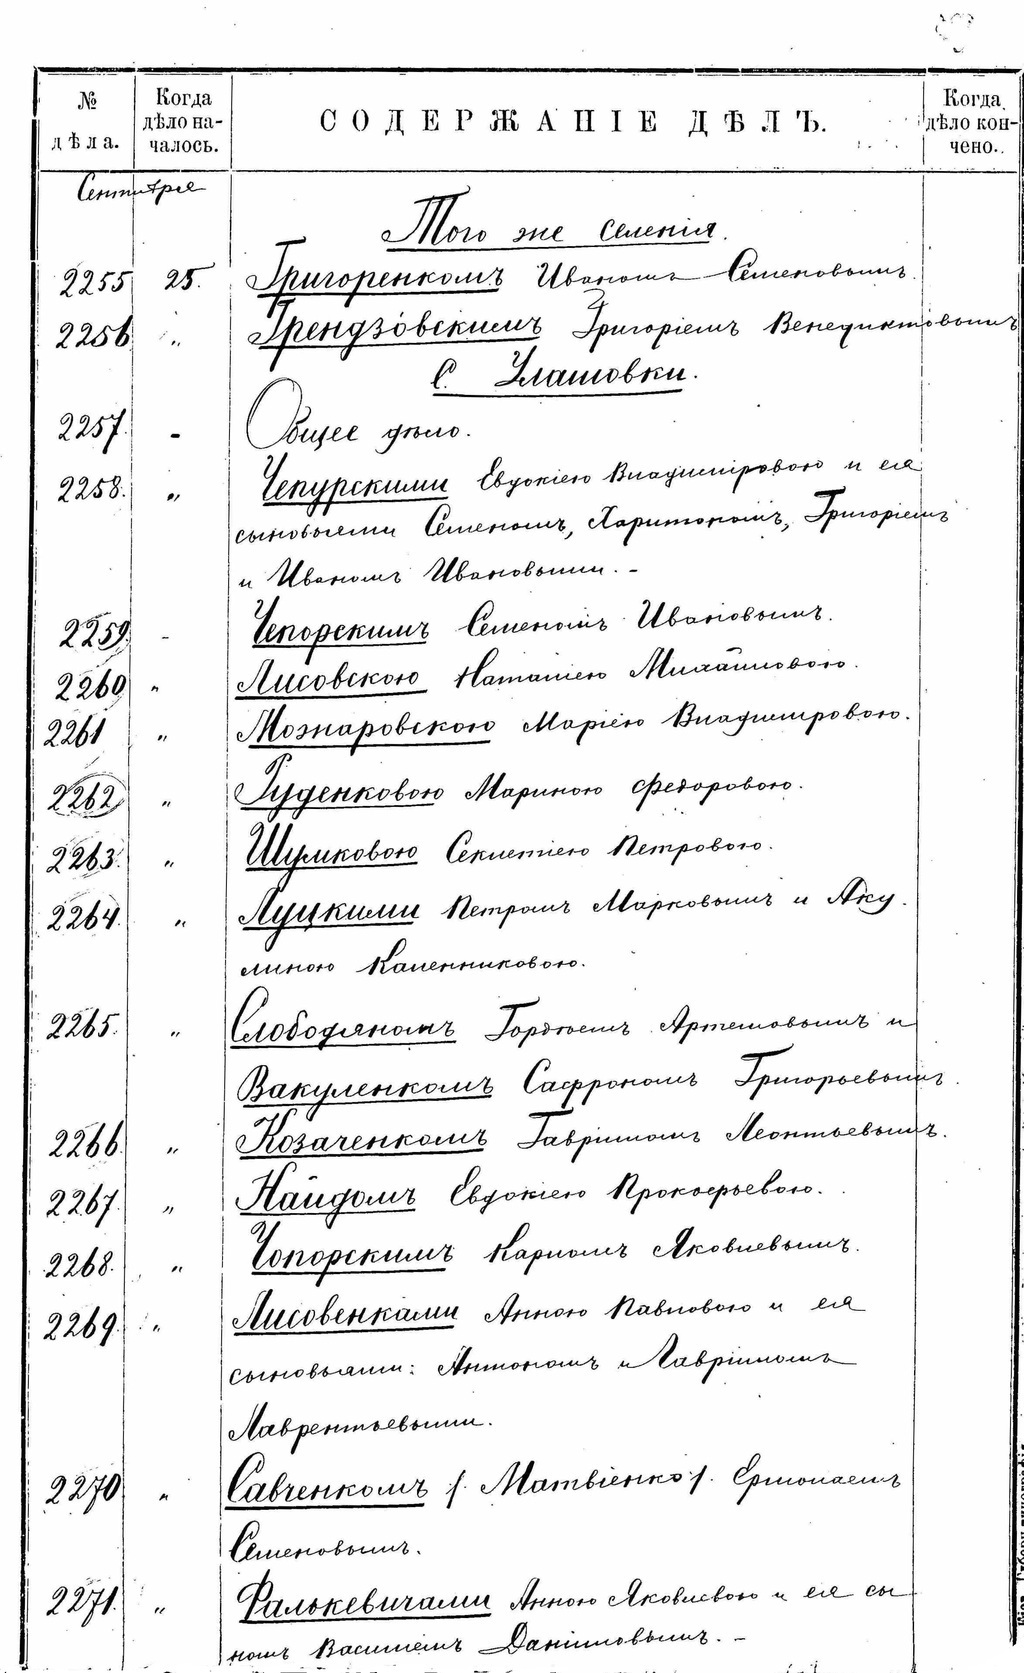 № дѣла.
Когда дѣло на-чалось.
СОДЕРЖАНІЕ ДѢЛЪ.
Когда дѣло кон-чено.
Сентября
Того же селенія.
2255 25. Григоренкомъ Иваномъ Семеновымъ.
2256 „ Грендзовскимъ Григоріемъ Венедиктовымъ
С. Улашовки.
2257. - Общее дѣло.
2258. „ Чепурскими Евдокіею Владиміровою и ея
сыновьями Семеномъ, Харитономъ, Григоріемъ
и Иваномъ Ивановыми. -
2259 - Чепорскимъ Семеномъ Ивановымъ.
2260 „ Лисовскою Наталіею Михайловою.
2261 „ Можнаровскою Маріею Владиміровою.
2262 „ Руденковою Мариною Федоровою.
2263. „ Шулмковою Секлетіею Петровою.
2264. „ Луцкими Петромъ Марковымъ и Аку-
линою Каленниковою.
2265. „ Слободяномъ Гордѣемъ Артемовымъ и
Вакуленкомъ Сафрономъ Григорьевымъ.
2266. „ Козаченкомъ Гавріиломъ Леонтьевымъ.
2267. „ Найдомъ Евдокіею Прокофьевою.
2268. „ Чопорскимъ Карпомъ Яковлевымъ.
2269. „ Лисовенками Анною Павловою и ея
сыновьями: Антономъ и Гавріиломъ
Лаврентьевыми.
2270 „ Савченкомъ /. Матвіенко /. Ермолаемъ
Семеновымъ.
2271. „ Фалькевичами Анною Яковлевою и ея сы
номъ Василіемъ Даніиловымъ. -